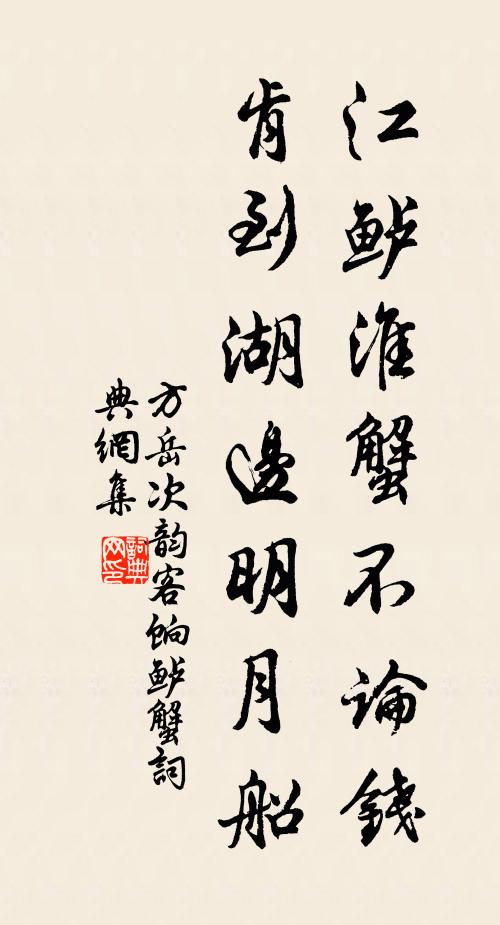 江鲈淮蟹不論錢
肯到湖邊明月船
方岳次韵客餉鲈蟹詞
典網集
詞典
网印